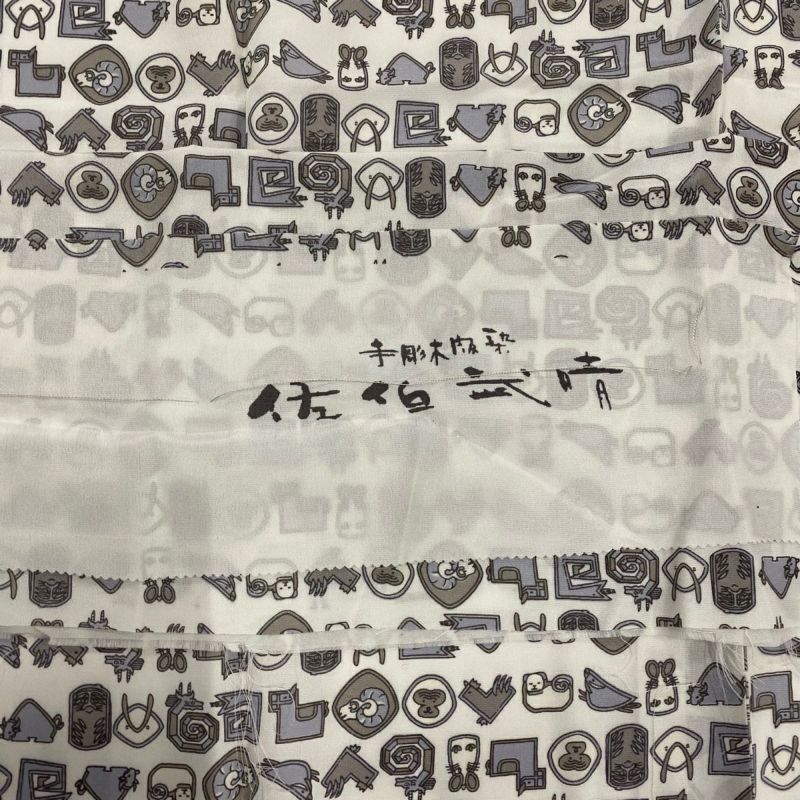 手彫木版染
佐伯武晴